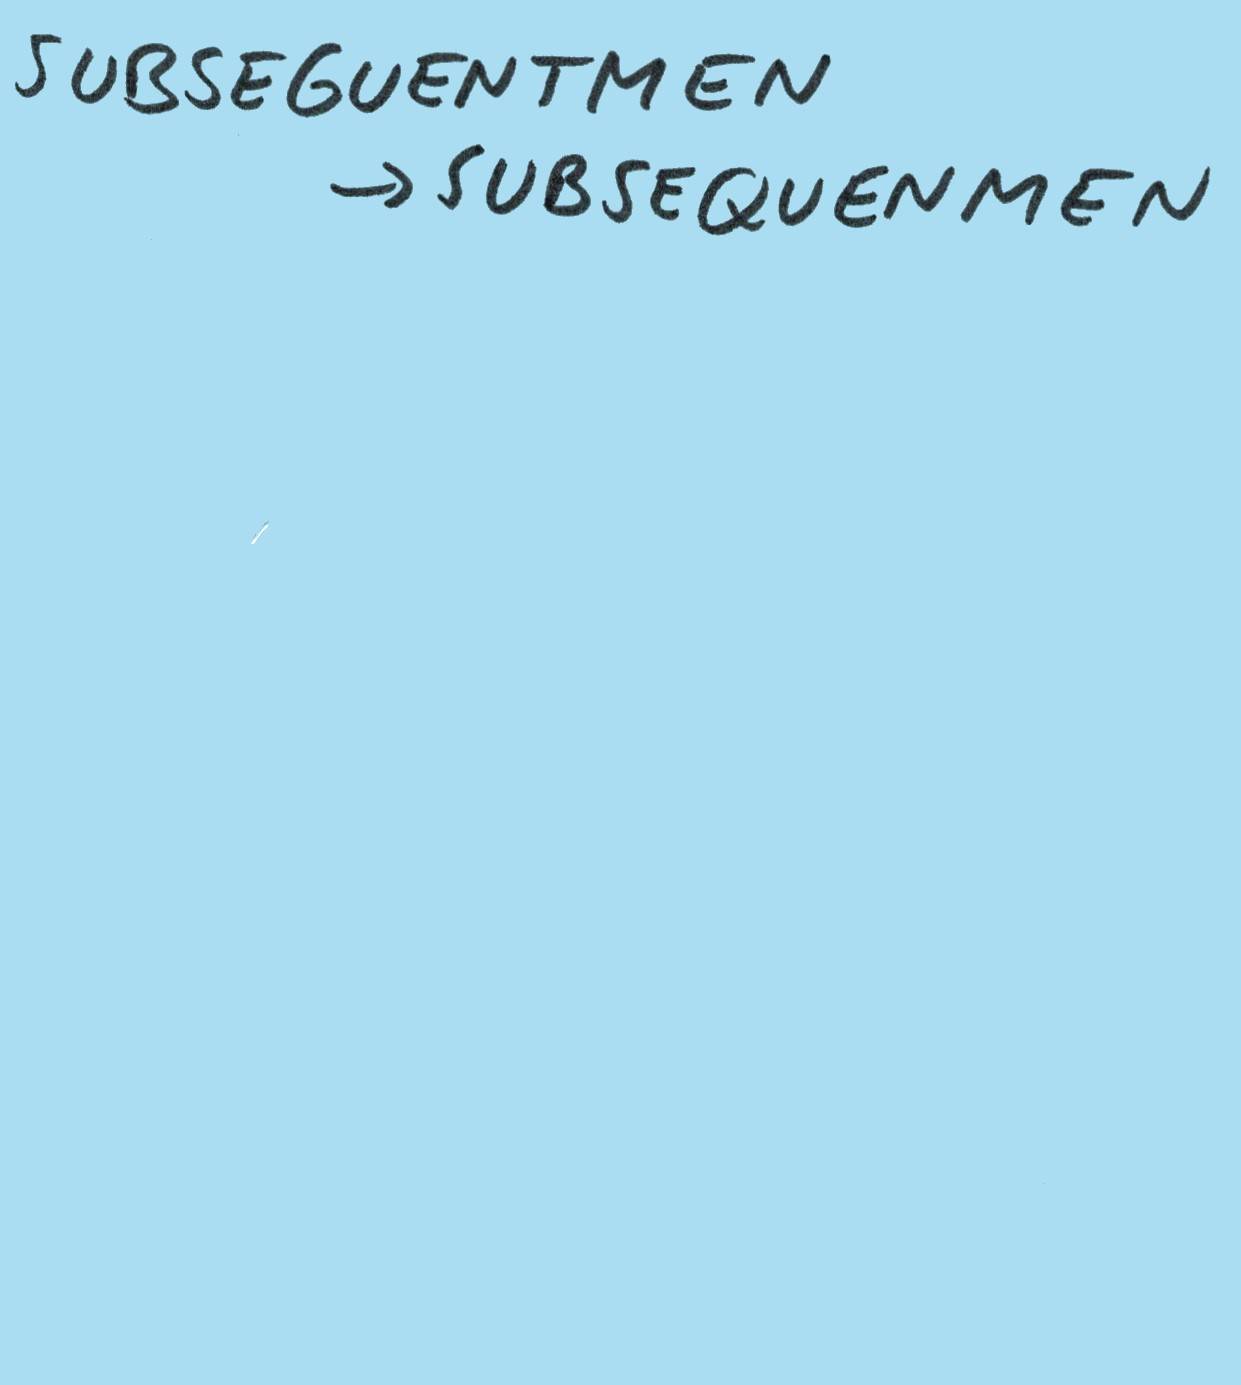 SUBSEGUENTMEN
→ SUBSEQUENMEN